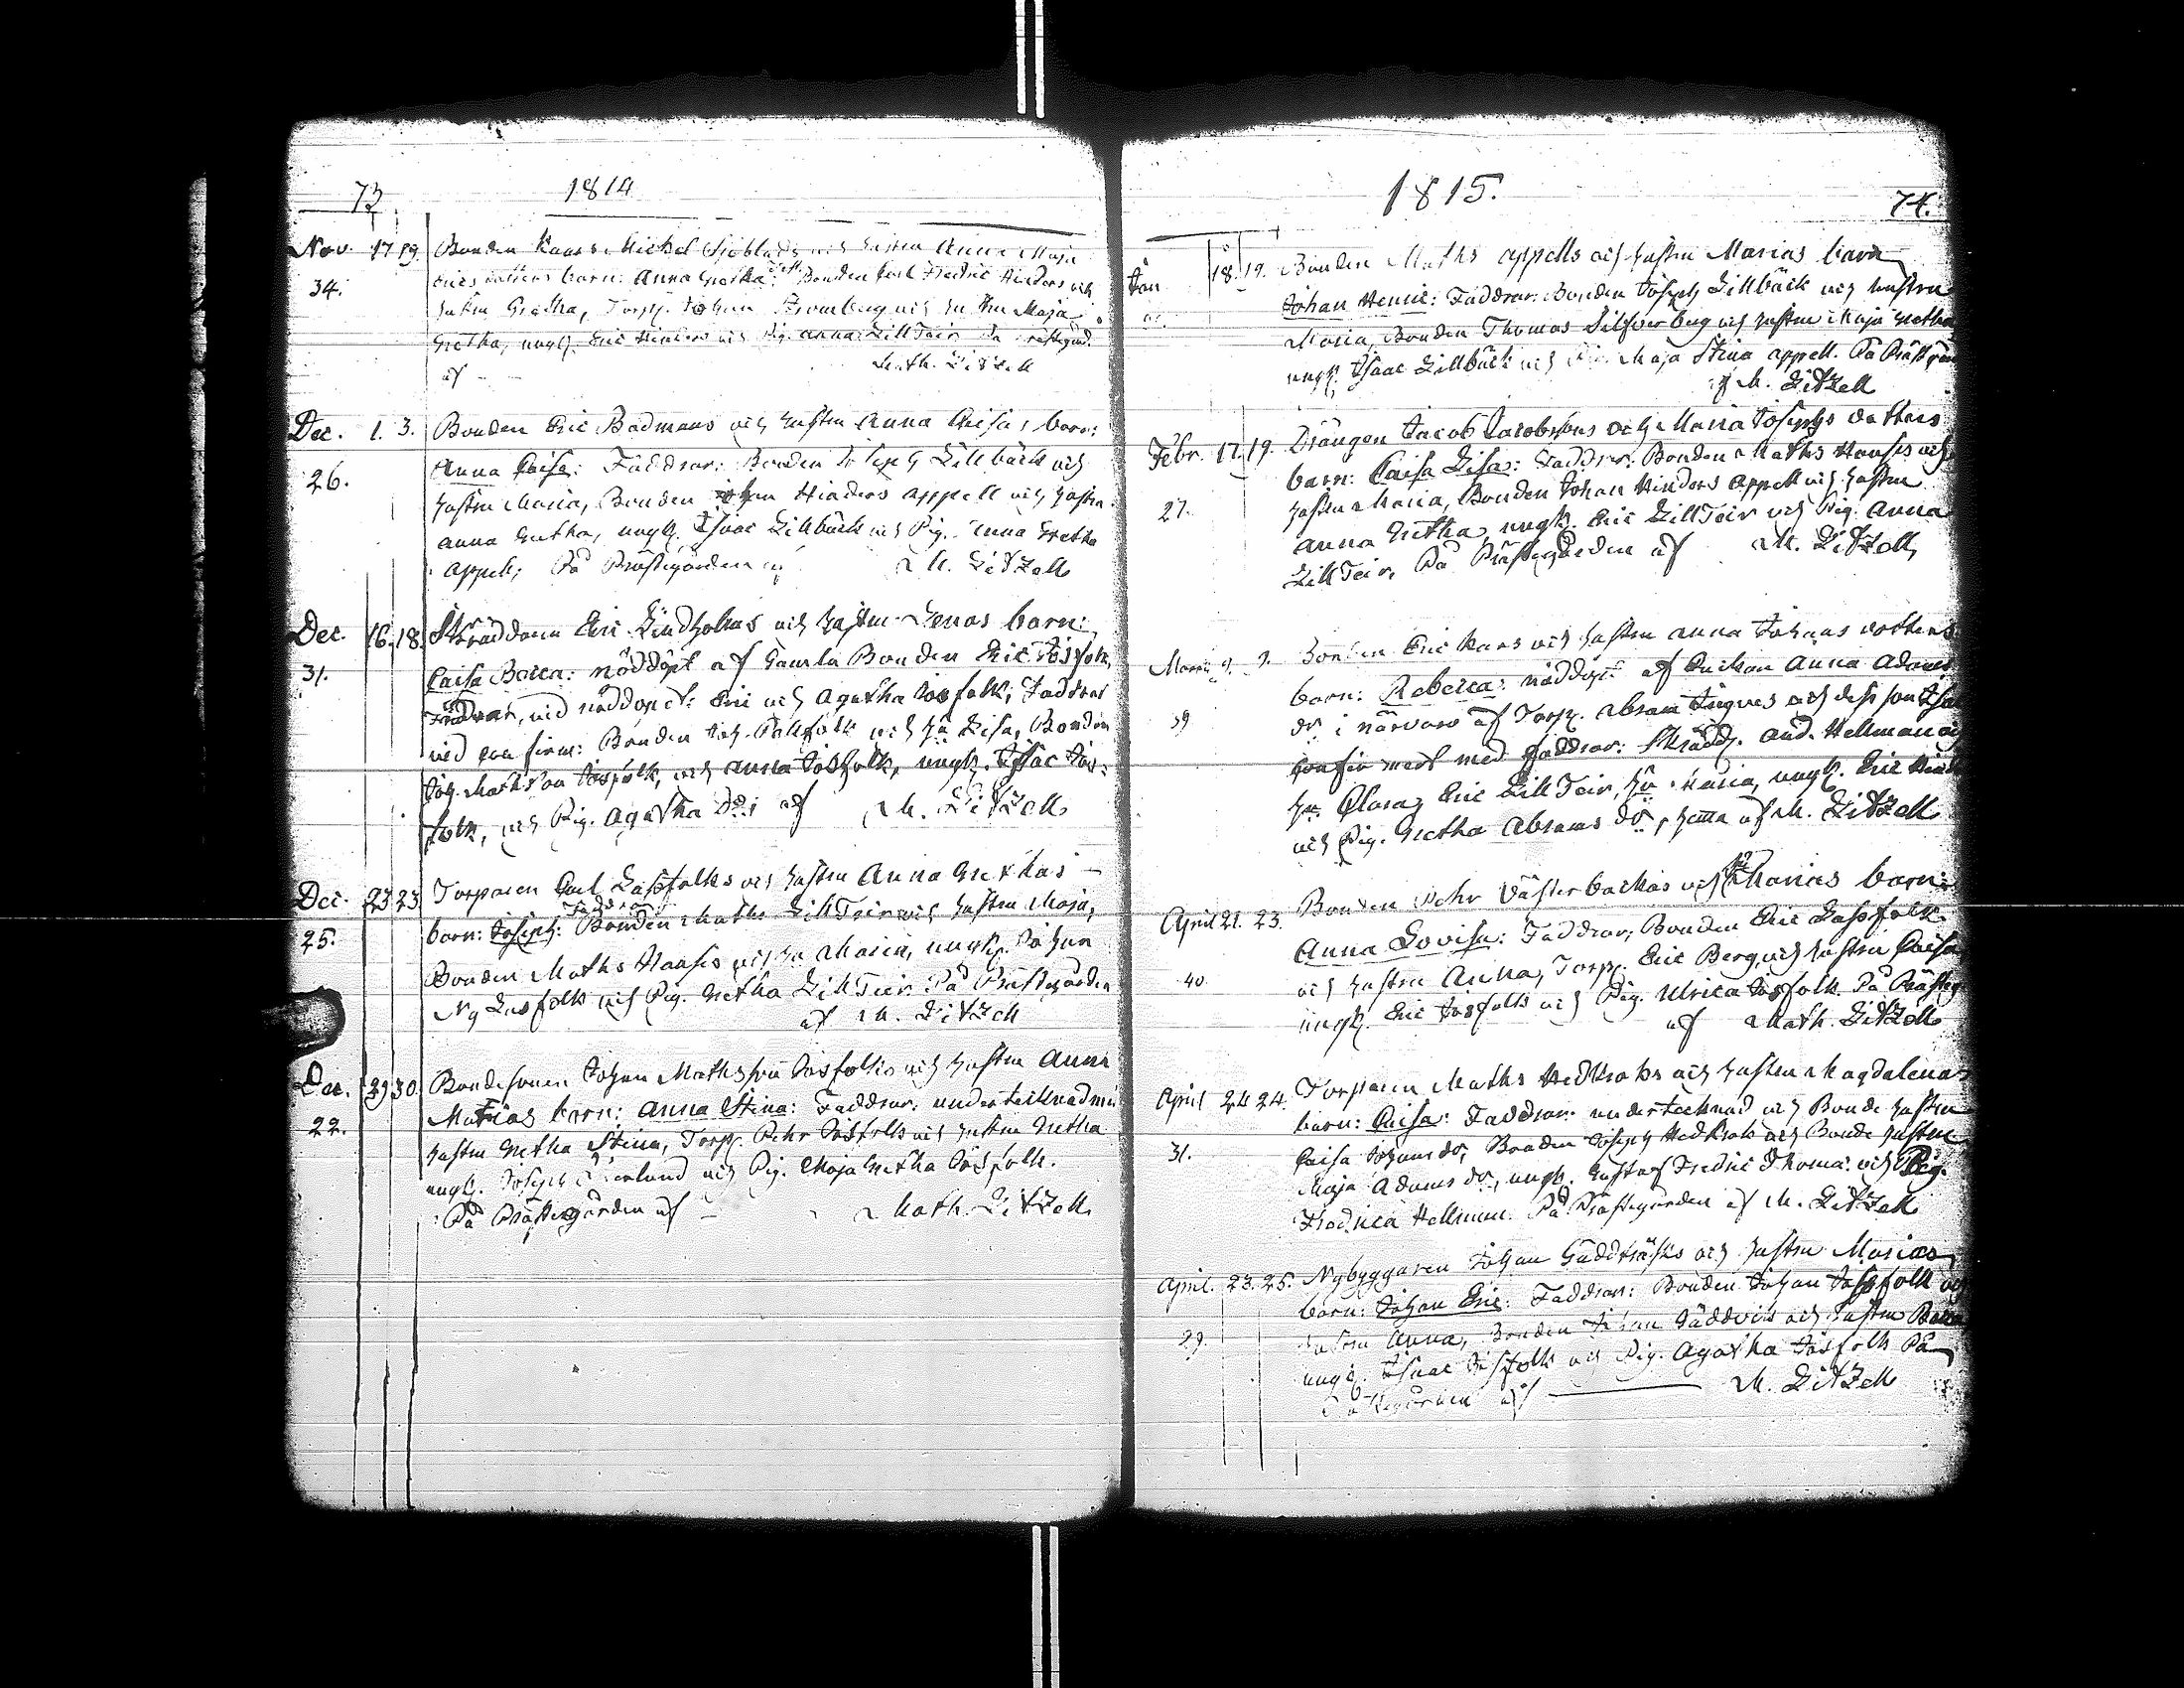 73 1814
Nov. 17 19. Bonden Hans Michel Sjöblads och hustru Anna Maja
Erics dotters barn: Anna Gretha: Bonden Carl Fredric Hinders och
34. hustru Gretha, Torp. Johan Stromberg och hustru Maja
Gretha, yngl. Eric Hinders och Pig. Anna LillTeir På Prästegård.
af Math. LitZell
Dec. 1. 3. Bonden Eric Bädmans och hustru Anna Caisas barn:
26. Anna Caisa: Faddrar: Bonden Joseph Lillbäck och
hustru Maria, Bonden Johan Hinders Appell och hustru
Anna Gretha, yngl. Isaac Lillbäck och Pig. Anna Gretha
Appell; På Prästegården af M. LitZell
Dec. 16. 18. Skräddaren Eric Lindholms och hustru Lenas barn:
31. Caisa Beata: nöddöpt af Gamla Bonden Eric Josfolk,
Faddrar, vid nöddopet: Eric och Agatha Josfolk; Faddrar
ved confirm: Bonden Joh. Pellfolk och hu Lisa, Bonden
Joh. Mathsson Josfolk, och Anna Josfolk, yngl. Isac Jos-
folk, och Pig. Agatha D:o; af M. LitZell
Dec. 23 23 Torparen Carl Lassfolks och hustru Anna Grethas
Faddrar
25. barn: Joseph: Bonden Maths LillTeir och hustru Maja,
Bonden Maths Haasis och hu Maria, yngl. Johan
Ny Lasfolk och Pig. Gretha LillTeir. På Prästegården
af M. LitZell
Dec. 29 30. Bondesonen Johan Mathsson Josfolks och hustru Anna
22. Marias barn: Anna Stina: Faddrar: undertecknad min
hustru Gretha Stina, Torp. Pehr Josfolk och hustru Gretha
yngl. Joseph och Pig. Maja Gretha Josfolk.
På Prästegården af Math. LitZell
1815. 74.
Jan 18. 19. Bonden Maths Appells och hustru Marias barn
Johan Henric: Faddrar: Bonden Joseph Lillbäck och hustru
Maria, Bonden Thomas Silfverberg och hustru Maja Gretha
yngl. Isaac Lillbäck och Pig. Maja Stina Appell. På Prästgår
af M. LitZell
Febr. 17 19. Drängen Jacob Jacobssons och Maria Josephs dotters
barn: Caisa Lisa: Faddrar: Bonden Maths Haasis och
27. hustru Maria, Bonden Johan Hinders Appell och hustru
Anna Gretha, yngl. Eric LillTeir och Pig. Anna
LillTeir, På Prästegården af M. LitZell
Martii 9. 9. Bonden Eric Hans och hustru Anna Johans dotters
barn: Rebecca: nöddöpt af Enckan Anna Adams
39 dr i närvaro af Torp. Abram Jugnes och dess son Isa
confirmert med faddrar: Skrädd. And. Hellman och
hu Clara, Eric LillTeir, hu Maria, yngl. Eric
och Pig. Gretha Abrams dr, hemma af M. LitZell
April 21. 23. Bonden Pehr Västerbackas och hu Marias barn:
Anna Lovisa: Faddrar; Bonden Eric Lassfolk
40. och hustru Anna, Torp. Eric Berg, och hustru Caisa
yngl. Eric Josfolk och Pig. Ulrica Josfolk. På Prästeg
af Math. LitZell
April 24 24. Torparen Maths Hedkroks och hustru Magdalenas
barn: Caisa: Faddrar: undertecknad och Bonde hustru
31. Caisa Johans dr, Bonden Joseph Hedkrok och Bonde hustru
Maja Adams dr, yngl. Gustaf Fredric Thomas och Pig.
Fredrica Hellman. På Prästegården af M. LitZell
April. 23. 25. Nybyggaren Johan Gäddträsks och hustru Marias
barn: Johan Eric: Faddrar: Bonden Johan Josfolk och
29. hustru Anna, Bonden Johan Gäddvik och hustru
yngl. Isaac Josfolk och Pig. Agatha Josfolk På
Prästegården af M. LitZell